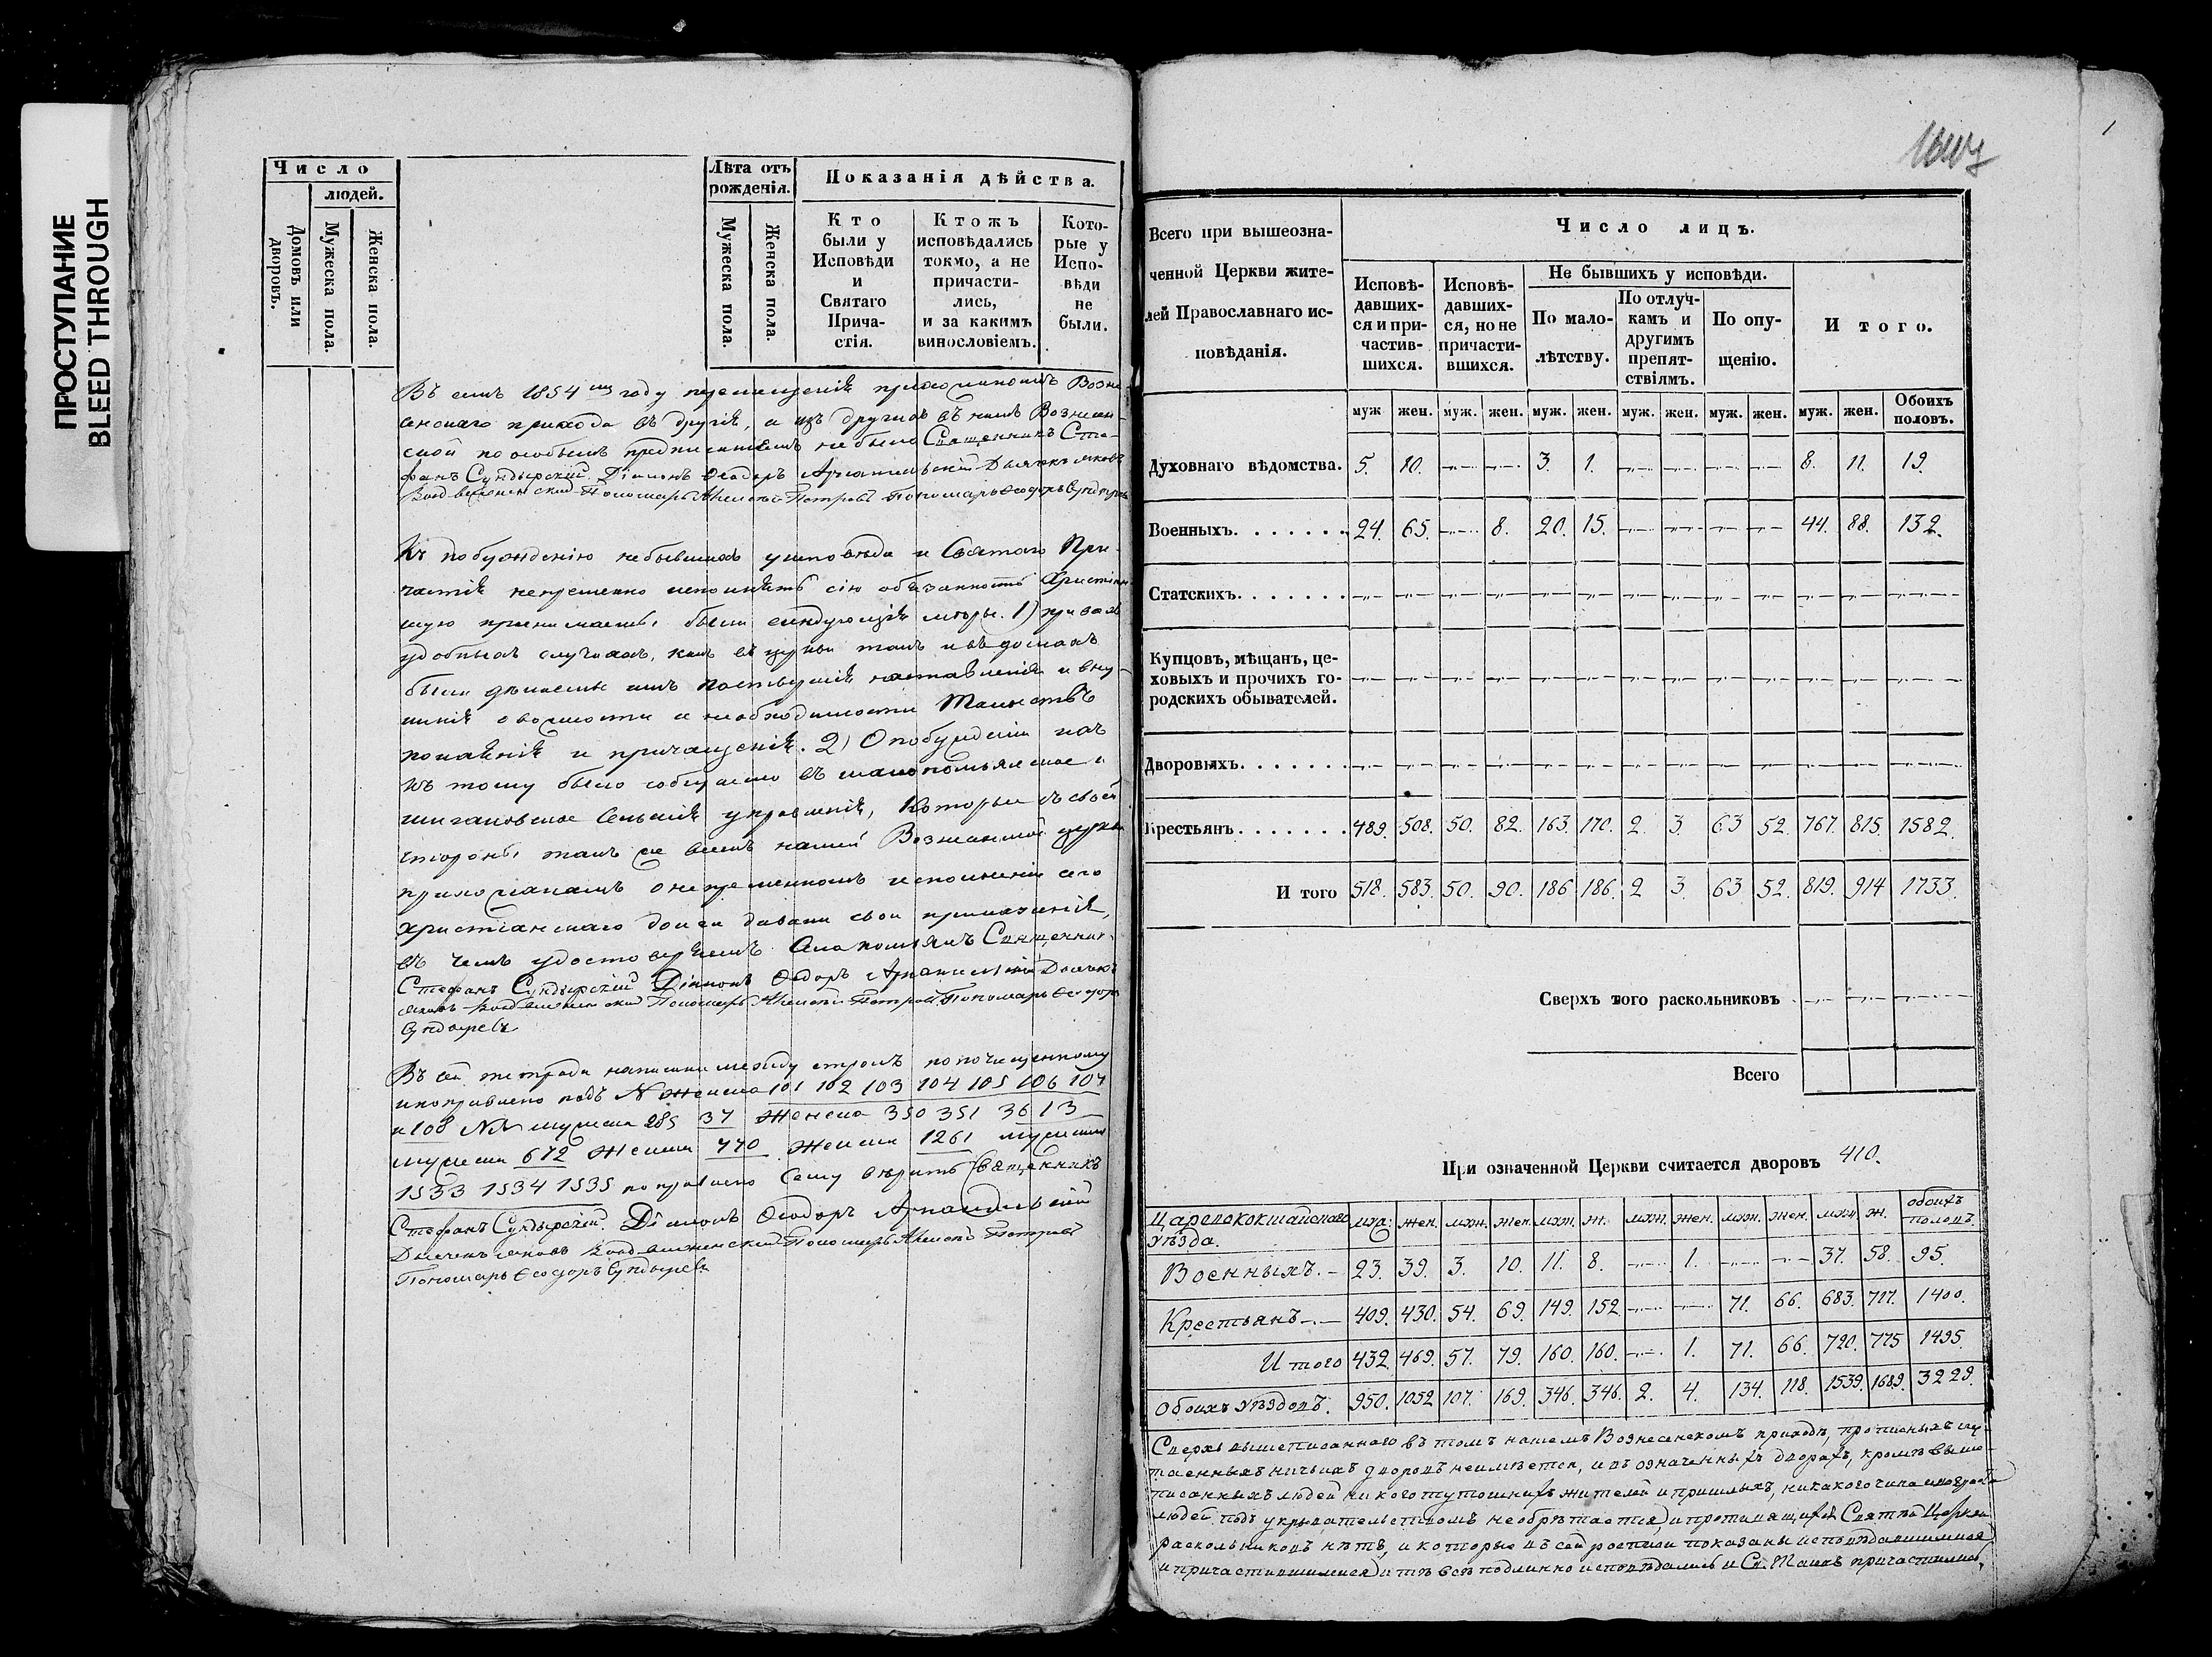 ПРОСТУПАНИЕ
BLEED THROUGH
Число
людей.
Домовъ или дворовъ.
Мужеска пола.
Женска пола.
Лѣта отъ рожденія.
Мужеска пола.
Женска пола.
Показанія дѣйства.
Кто были у Исповѣди и Святаго Прича-стія.
Ктожъ исповѣдались токмо, а не причасти-лись, и за какимъ винословіемъ.
Кото-рые у Испо-вѣди не были.
Въ семъ 1854мъ году перемещенія прихожанъ Возне-
сенскаго прихода въ другія, а изъ другихъ въ нашъ Вознесен-
ской по особымъ предписаніямъ не было Священникъ Сте-
фанъ Сундырскій Діаконъ Ѳеодоръ Архангельскій Дьячекъ Іаковъ
Воздвиженский Пономарь Алексѣй Петровъ Пономарь Ѳеодоръ Сундыревъ
Къ побужденію небывшихъ у исповѣди и Святаго При-
частія непременно исполнять сію обязанность Христіан-
скую принимаемы были следующія меры. 1) при всѣхъ
удобныхъ случаяхъ, какъ въ церкви такъ и въ домахъ
были делаемы имъ пастырскія наставленія и вну-
шенія о важности и необходимости Таинствъ
покаянія и причащенія. 2) О побужденіи ихъ
къ тому было сообщаемо въ
сельскія управленія, которыя съ своей
стороны такъ же всемъ нашей Вознесенской церкви
прихожанамъ о непременномъ исполненіи сего
христіанскаго долга давали свои приказанія,
въ чемъ удостоверяемъ Священникъ
Стефанъ Сундырскій Діаконъ Ѳеодоръ Архангельскій Дьячекъ
Іаковъ Воздвиженский Пономарь Алексѣй Петровъ Пономарь Ѳеодоръ
Сундыревъ
Въ сей тетради написаны между строкъ по почищенному
и поправлено подъ № Женска 101 102 103 104 105 106 107
и 108 №№ мужска 285 37 Женска 350 351 36 13
мужска 672 Женска 770 Женска 1261 мужска
1533 1534 1535 поправлено сему верить Священникъ
Стефанъ Сундырскій. Діаконъ Ѳеодоръ Архангельскій
Дьячекъ Іаковъ Воздвиженский Пономарь Алексѣй Петровъ
Пономарь Ѳеодоръ Сундыревъ
Всего при вышеозна-ченной Церкви жите-лей Православнаго ис-повѣданія.
Число лицъ.
Исповѣ-давших-ся и при-частив-шихся.
Исповѣ-давших-ся, но не причасти-вшихся.
Не бывшихъ у исповѣди.
По мало-лѣтству.
По отлуч-камъ и другимъ препят-ствіямъ.
По опу-щенію.
И того.
муж. жен. муж. жен. муж. жен. муж. жен. муж. жен. муж. жен. Обоихъ половъ.
Духовнаго вѣдомства. 5. 10. 3. 1. 8. 11. 19.
Военныхъ. 24. 65. 8. 20. 15. 44. 88. 132.
Статскихъ.
Купцовъ, мѣщанъ, це-ховыхъ и прочихъ го-родскихъ обывателей.
Дворовыхъ.
Крестьянъ. 489. 508. 50. 82. 163. 170. 2. 3. 63 52. 767. 815. 1582.
И того 518. 583. 50. 90. 186. 186. 2 3. 63 52. 819. 914 1733.
Сверхъ того раскольниковъ
Всего
При означенной Церкви считается дворовъ 410.
Царевококшайскаго уѣзда. муж. жен. муж. жен. муж. ж. муж. жен. муж. жен. муж. ж. обоихъ половъ.
Военныхъ. 23. 39. 3. 10. 11. 8. 1. 37. 58. 95.
Крестьянъ 409. 430. 54. 69. 149. 152. 71. 66. 683. 717. 1400.
Итого 432. 469. 57. 79. 160. 160. 1. 71. 66. 720. 775 1495.
Обоихъ уѣздовъ. 950. 1052 107. 169. 346. 346. 2. 4. 134. 118. 1539. 1689. 3229.
Сверхъ вышеписаннаго въ томъ нашемъ Вознесенскомъ приходѣ, прописныхъ и у-
таенныхъ ничьихъ дворовъ неимѣется, и въ означенныхъ дворахъ, кромѣ выше-
писанныхъ людей никого тутошнихъ жителей и пришлыхъ, никакого чина и возраста
людей подъ укрывательствомъ необрѣтается, и противящихся Святѣй Церкви
раскольниковъ нѣтъ, и которые въ сей росписи показаны исповѣдавшимися
и причастившимися, и тѣ всѣ подлинно исповѣдались и Св. Таинъ причастились,